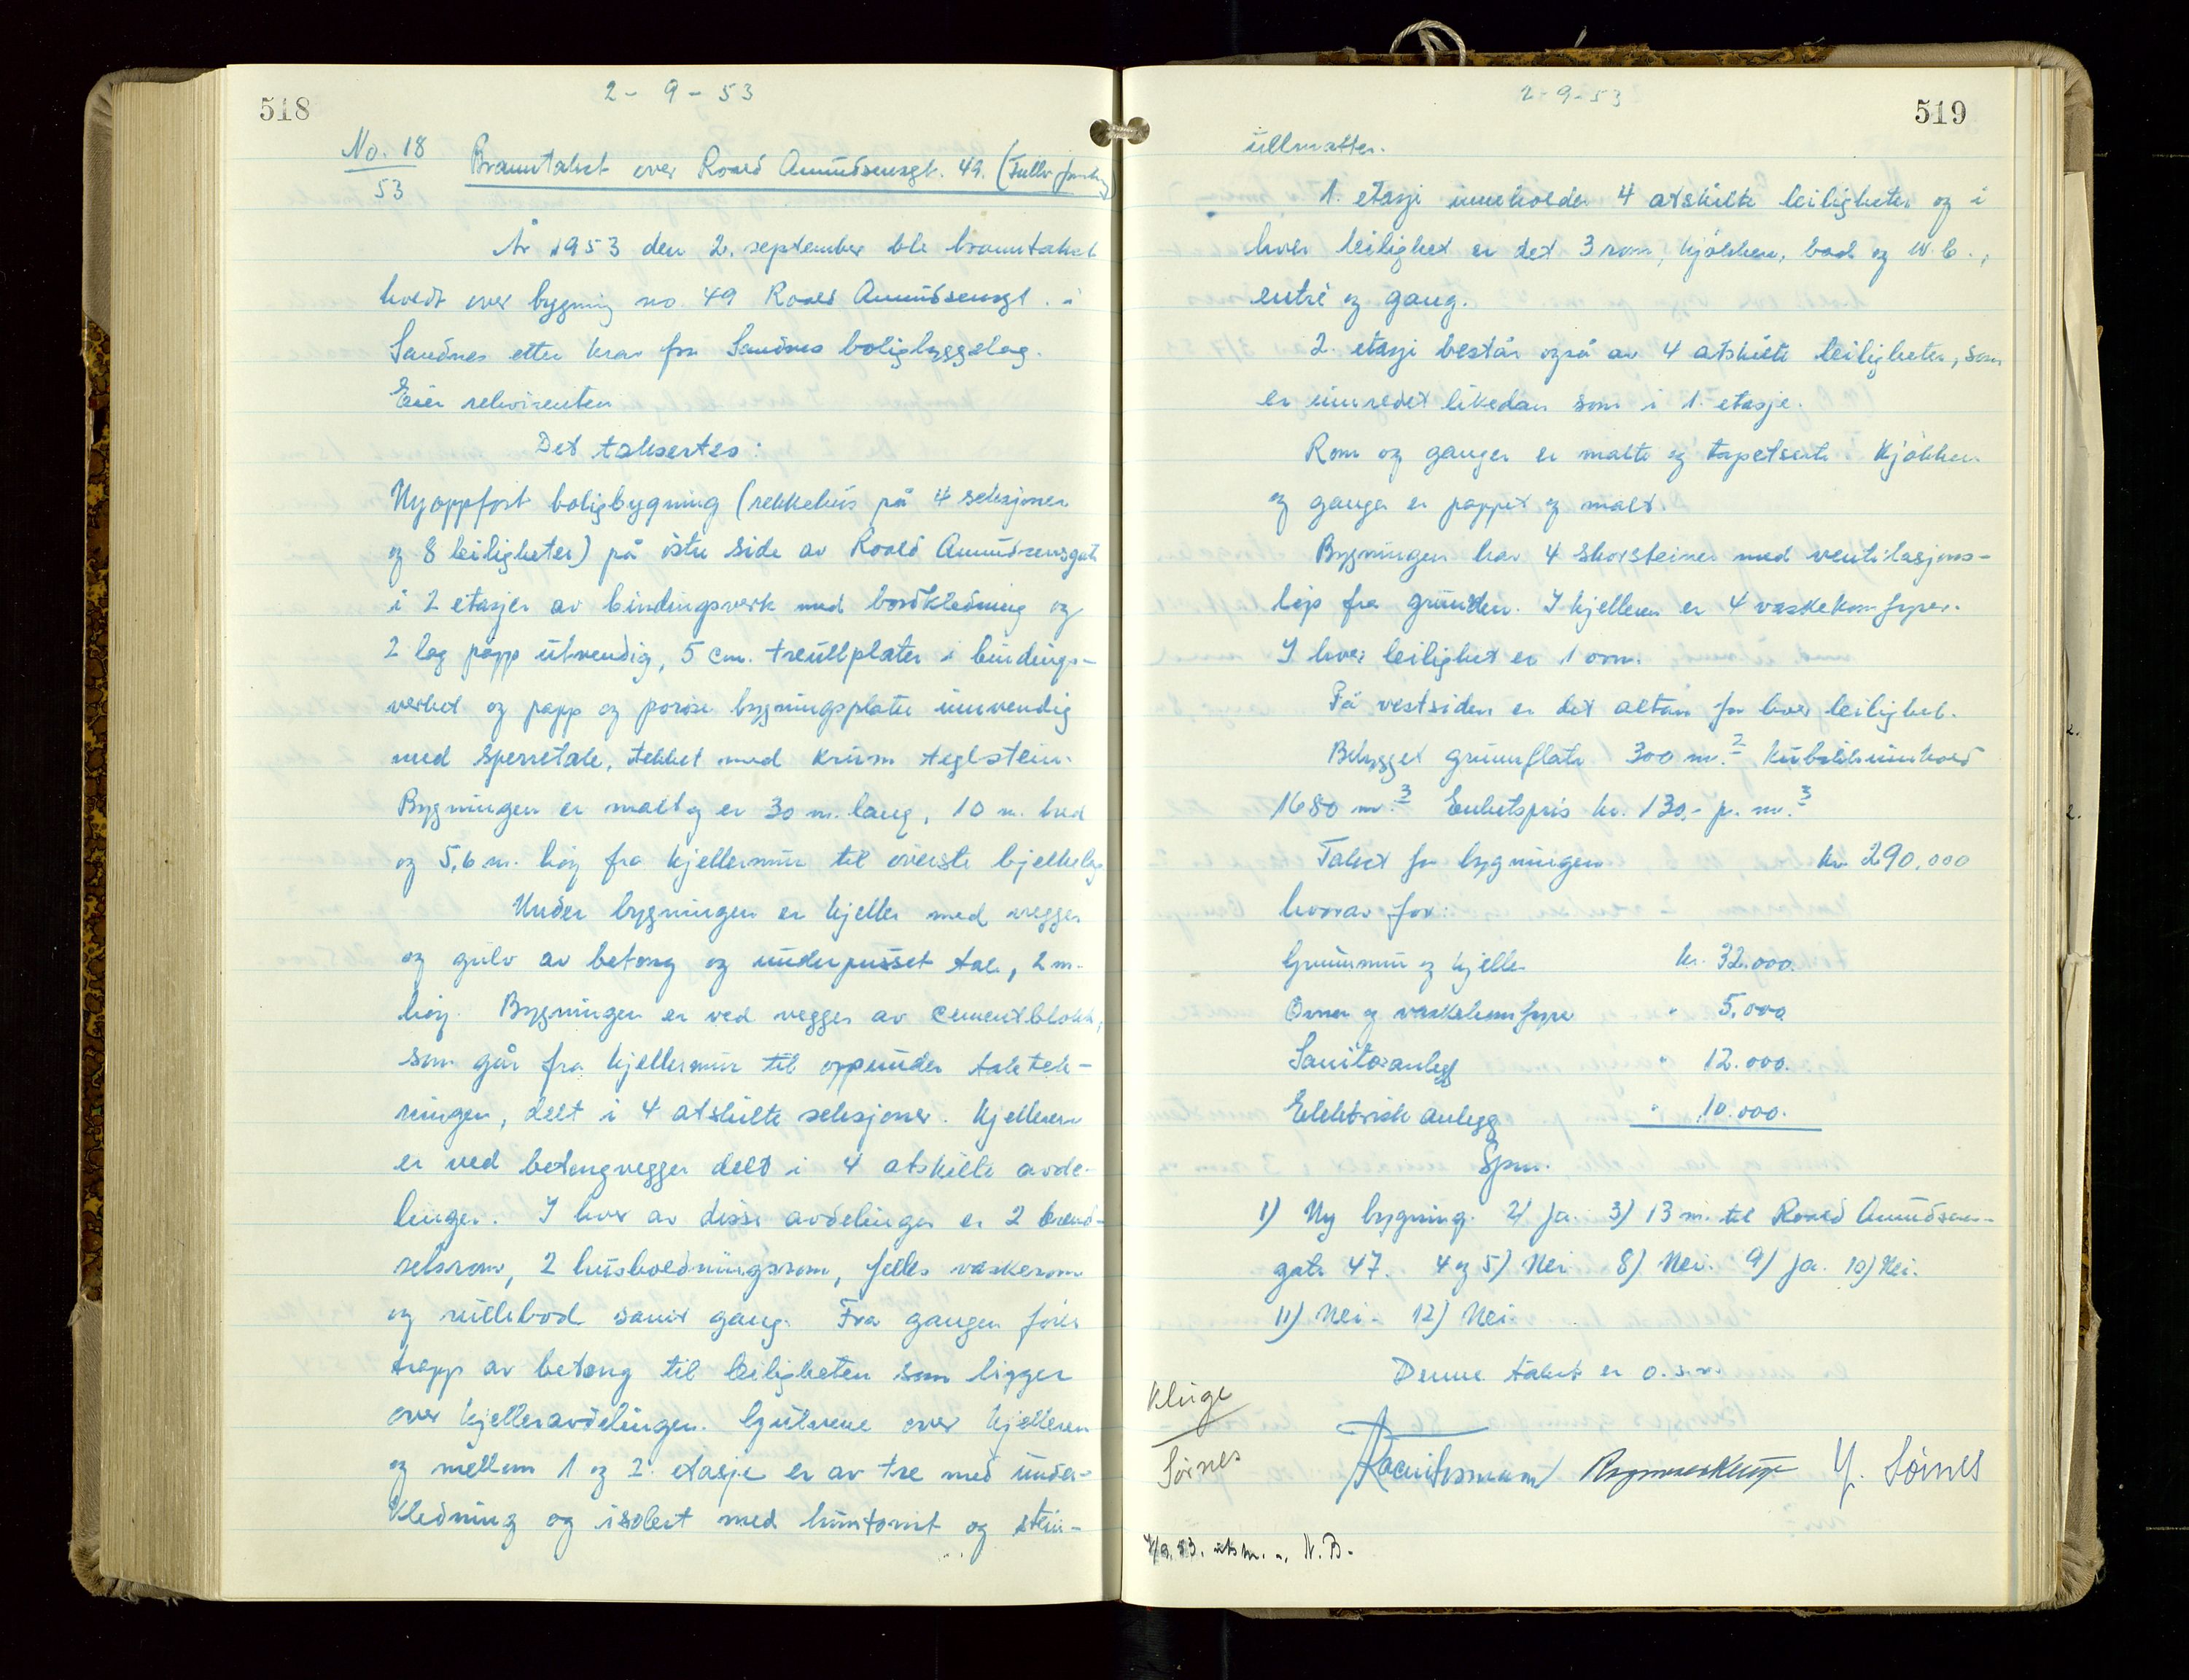 518
2-9-53
No. 18
53
Branntakst over Roald Amundsensgt. 49. (Fullv.
År 1953 den 2. september ble branntakst
holdt over bygning no. 49 Roald Amundsensgt. i
Sandnes etter krav fra Sandnes boligbyggelag.
Eier rekvirenten
Det taksertes:
Nyoppført boligbygning (rekkehus på 4 seksjoner
og 8 leiligheter) på østre side av Roald Amundsensgate
i 2 etasjer av bindingsverk med bordkledning og
2 lag papp utvendig, 5 cm. treullplater i bindings-
verket og papp og porøse bygningsplater innvendig
med sperretak, tekket med krum teglstein.
Bygningen er malt og er 30 m. lang, 10 m. bred
og 5,6 m. høy fra kjellermur til øverste bjelkelag
Under bygningen er kjeller med vegger
og gulv av betong og underpusset tak, 2 m.
høy. Bygningen er ved vegger av cementblokk,
som går fra kjellermur til oppunder taktek-
ningen, delt i 4 atskilte seksjoner. Kjelleren
er ved betongvegger delt i 4 atskilte avde-
linger. I hver av disse avdelinger er 2 brend-
selsrom, 2 husholdningsrom, felles vaskerom
og rullebod samt gang. Fra gangen fører
trapp av betong til leiligheten som ligger
over kjelleravdelingen. Gulvene over kjelleren
og mellem 1 og 2. etasje er av tre med under-
kledning og isolert med huntonit og stein-
2-9-53
519
ullmatter.
1. etasje inneholder 4 atskilte leiligheter og i
hver leilighet er det 3 rom, kjøkken, bad og W.C.,
entré og gang.
2. etasje består også av 4 atskilte leiligheter, som
er innredet likedan som i 1. etasje.
Rom og ganger er malte og tapetserte. Kjøkken
og ganger er pappet og malt.
Bygningen har 4 skorsteiner med ventilasjons-
løp fra grunnen. I kjelleren er 4 vaskekomfyrer.
I hver leilighet er 1 ovn.
På vestsiden er det altan for hver leilighet.
Bebygget grunnflate 300 m.2 Kubikkinnhold
1680 m.3 Enhetspris kr. 130,- p. m.3
Takst for bygningen kr. 290.000
hvorav for:
Grunnmur og kjeller kr. 32.000.
Ovner og vaskekomfyrer " 5.000
Sanitæranlegg " 12.000.
Elektrisk anlegg " 10.000.
Spm.
1) Ny bygning. 2) Ja. 3) 13 m. til Roald Amundsens-
gate 47. 4 og 5) Nei 8) Nei. 9) Ja. 10) Nei.
11) Nei. 12) Nei.
Denne takst er o.s.v.
Kluge
Sørnes
Y. Sørnes
N. B.